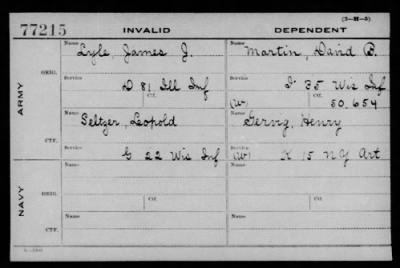 (3-H-5)
77215 INVALID DEPENDENT
Name Name
Lyle, James J. Martin, David B.
ORIG. Service CO. Service CO.
D 81 Ill Inf I 35 Wis Inf
(W) 50,654
ARMY
Name Name
Seltzer, Leopold Gervig, Henry
CTF. Service Service
G 22 Wis Inf (W) K 15 NY Art
Name Name
ORIG. Service CO. Service CO.
NAVY
Name Name
CTF.